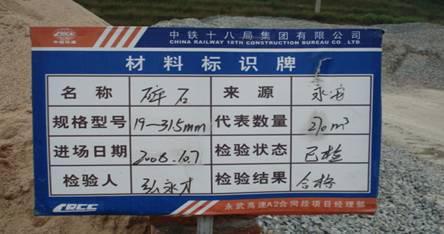 中铁十八局集团有限公司
CHINA RAILWAY 18TH CONSTRUCTION BUREAU CO.,LTD
材料标识牌
名称 碎石 来源 永安
规格型号 19-31.5mm 代表数量 270m³
进场日期 2008.10.7 检验状态 已检
检验人 检验结果 合格
CRCC 永武高速A2合同段项目经理部